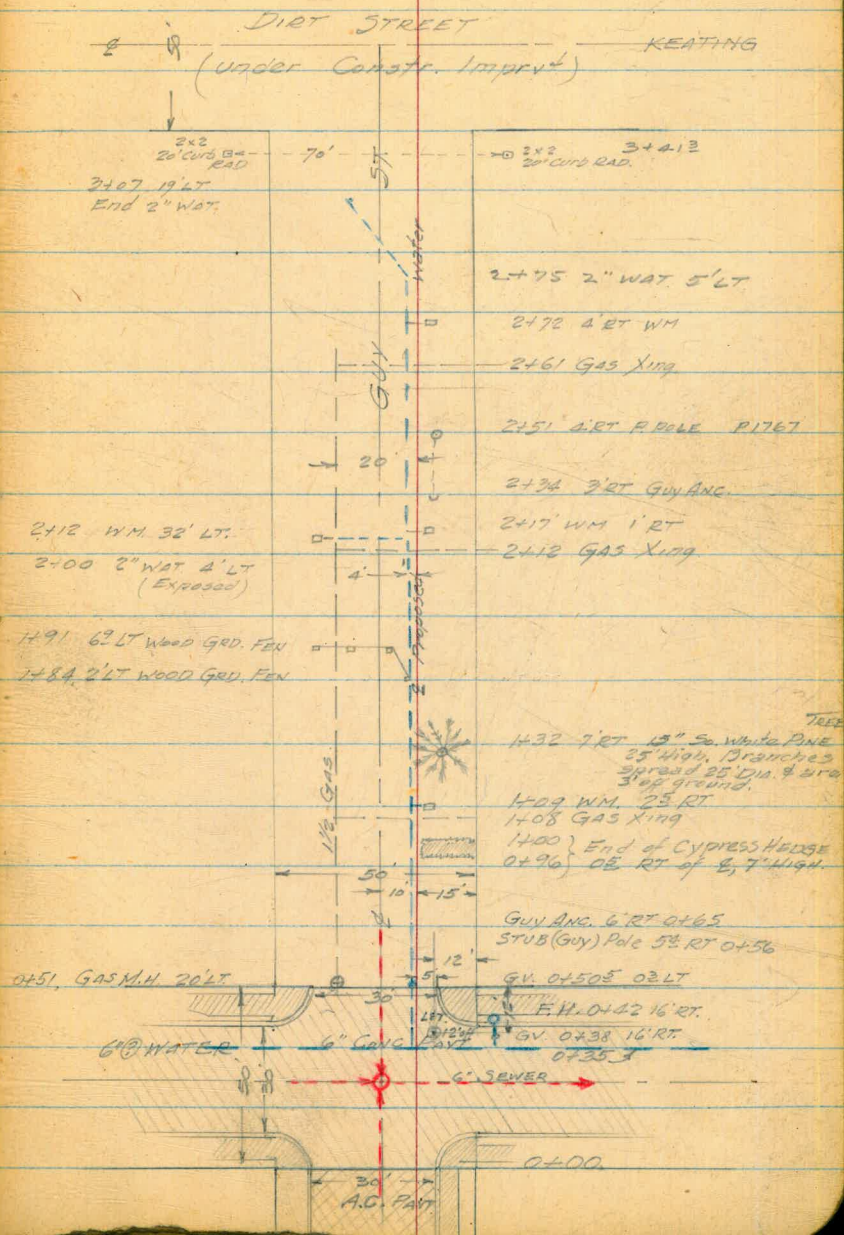 DIRT STREET
KEATING
(under Constr. Imprvt)
2x2
20' Curb
RAD
70'
2x2
20' Curb RAD.
3+41³
ST.
3+07 19' LT
End 2" WAT.
water
2+75 2" WAT. 5' LT
2+72 4' RT WM
2+61 GAS Xing
GUY
2+51 4' RT P. POLE P1767
20
2+34 3' RT Guy ANC.
2+17 WM 1' RT
2+12 WM. 32' LT.
2+12 GAS Xing
2+00 2" WAT 4' LT
(Exposed)
4'
Proposed
1+91 6⁹ LT WOOD GRD. FEN
1+84 2' LT WOOD GRD. FEN
TREE
1+32 7' RT 15" So. White PINE
25' High. Branches
spread 25' DIA. & are
3' off ground.
1½ GAS
1+09 WM. 2⁵ RT
1+08 GAS Xing
1+00 } End of Cypress HEDGE
0+96 } 0⁵ RT of ℄, 7' HIGH.
50'
10' 15'
℄
GUY ANC. 6' RT 0+65
STUB (Guy) Pole 5⁵ RT 0+56
12'
0+51, GAS M.H. 20' LT.
5'
GV. 0+50⁵ 0² LT
30'
F.H. 0+42 16' RT.
GV. 0+38 16' RT.
6" WATER
6" CONC. PAVT
0+35
6" SEWER
0+00
30'
A.C. PAVT